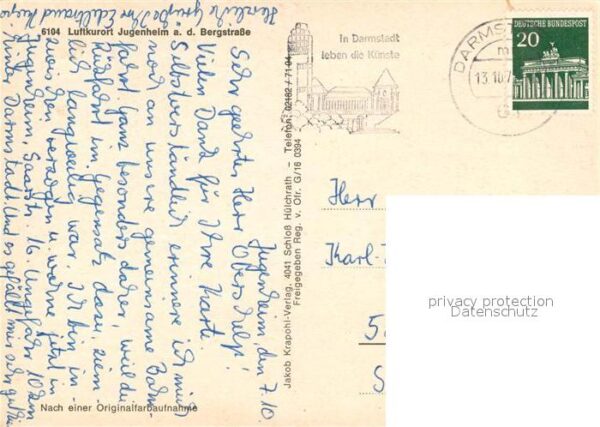 6104 Luftkurort Jugenheim a. d. Bergstraße
Jugenheim, den 7.10.
Sehr geehrter Herr
Vielen Dank für Ihre Karte.
Selbstverständlich erinnere ich mich
noch an unsere gemeinsame Bahn-
fahrt ganz besonders daher, weil die
Rückfahrt im Gegensatz dazu, zum
langweilig war. Ich bin in-
zwischen verzogen u. wohne jetzt in
Jugenheim, Saarstr. 16. Ungefähr 10 km
hinter Darmstadt. Und es gefällt mir sehr gut hier.
Herzliche Grüße Ihr
Nach einer Originalfarbaufnahme
Jakob Krapohl-Verlag, 4041 Schloß Hülchrath – Telefon: 02182 / 71 04
Freigegeben Reg. v. Ofr. G/16 0394
In Darmstadt
leben die Künste
DARMST
m
13.10.7
61
DEUTSCHE BUNDESPOST
20
Herr
Karl-
5
S
privacy protection
Datenschutz